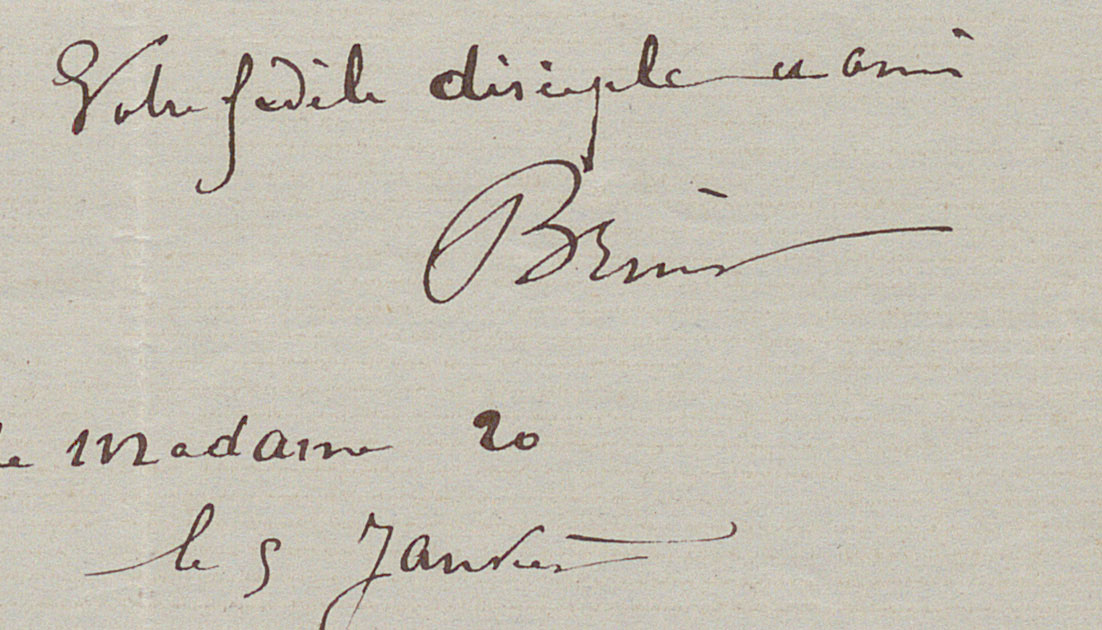 Votre fidèle disciple et ami
le Madame 20
le 5 Janvier